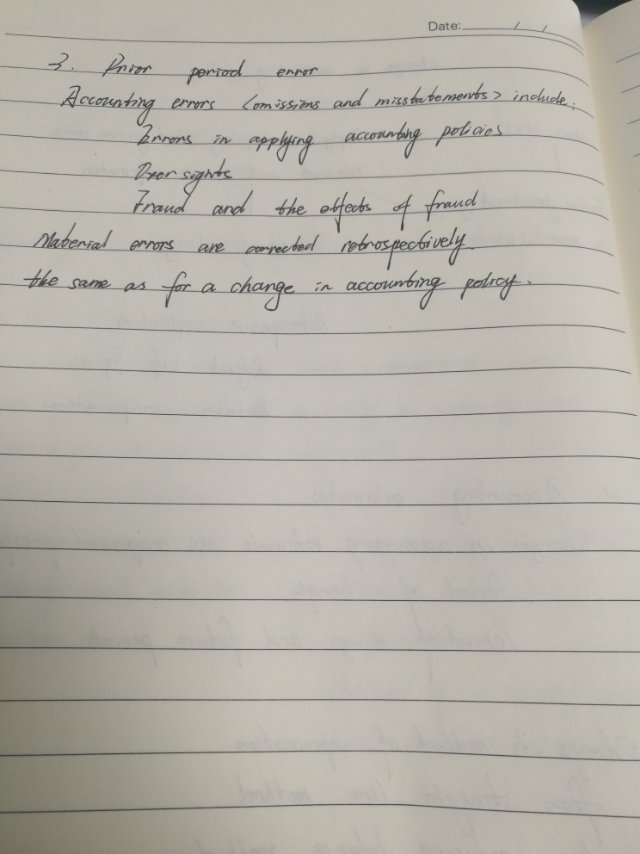 Date: / /
3. Prior period error
Accounting errors <omissions and misstatements> include:
Errors in applying accounting policies
Over sights
Fraud and the effects of fraud
Material errors are corrected retrospectively
the same as for a change in accounting policy.